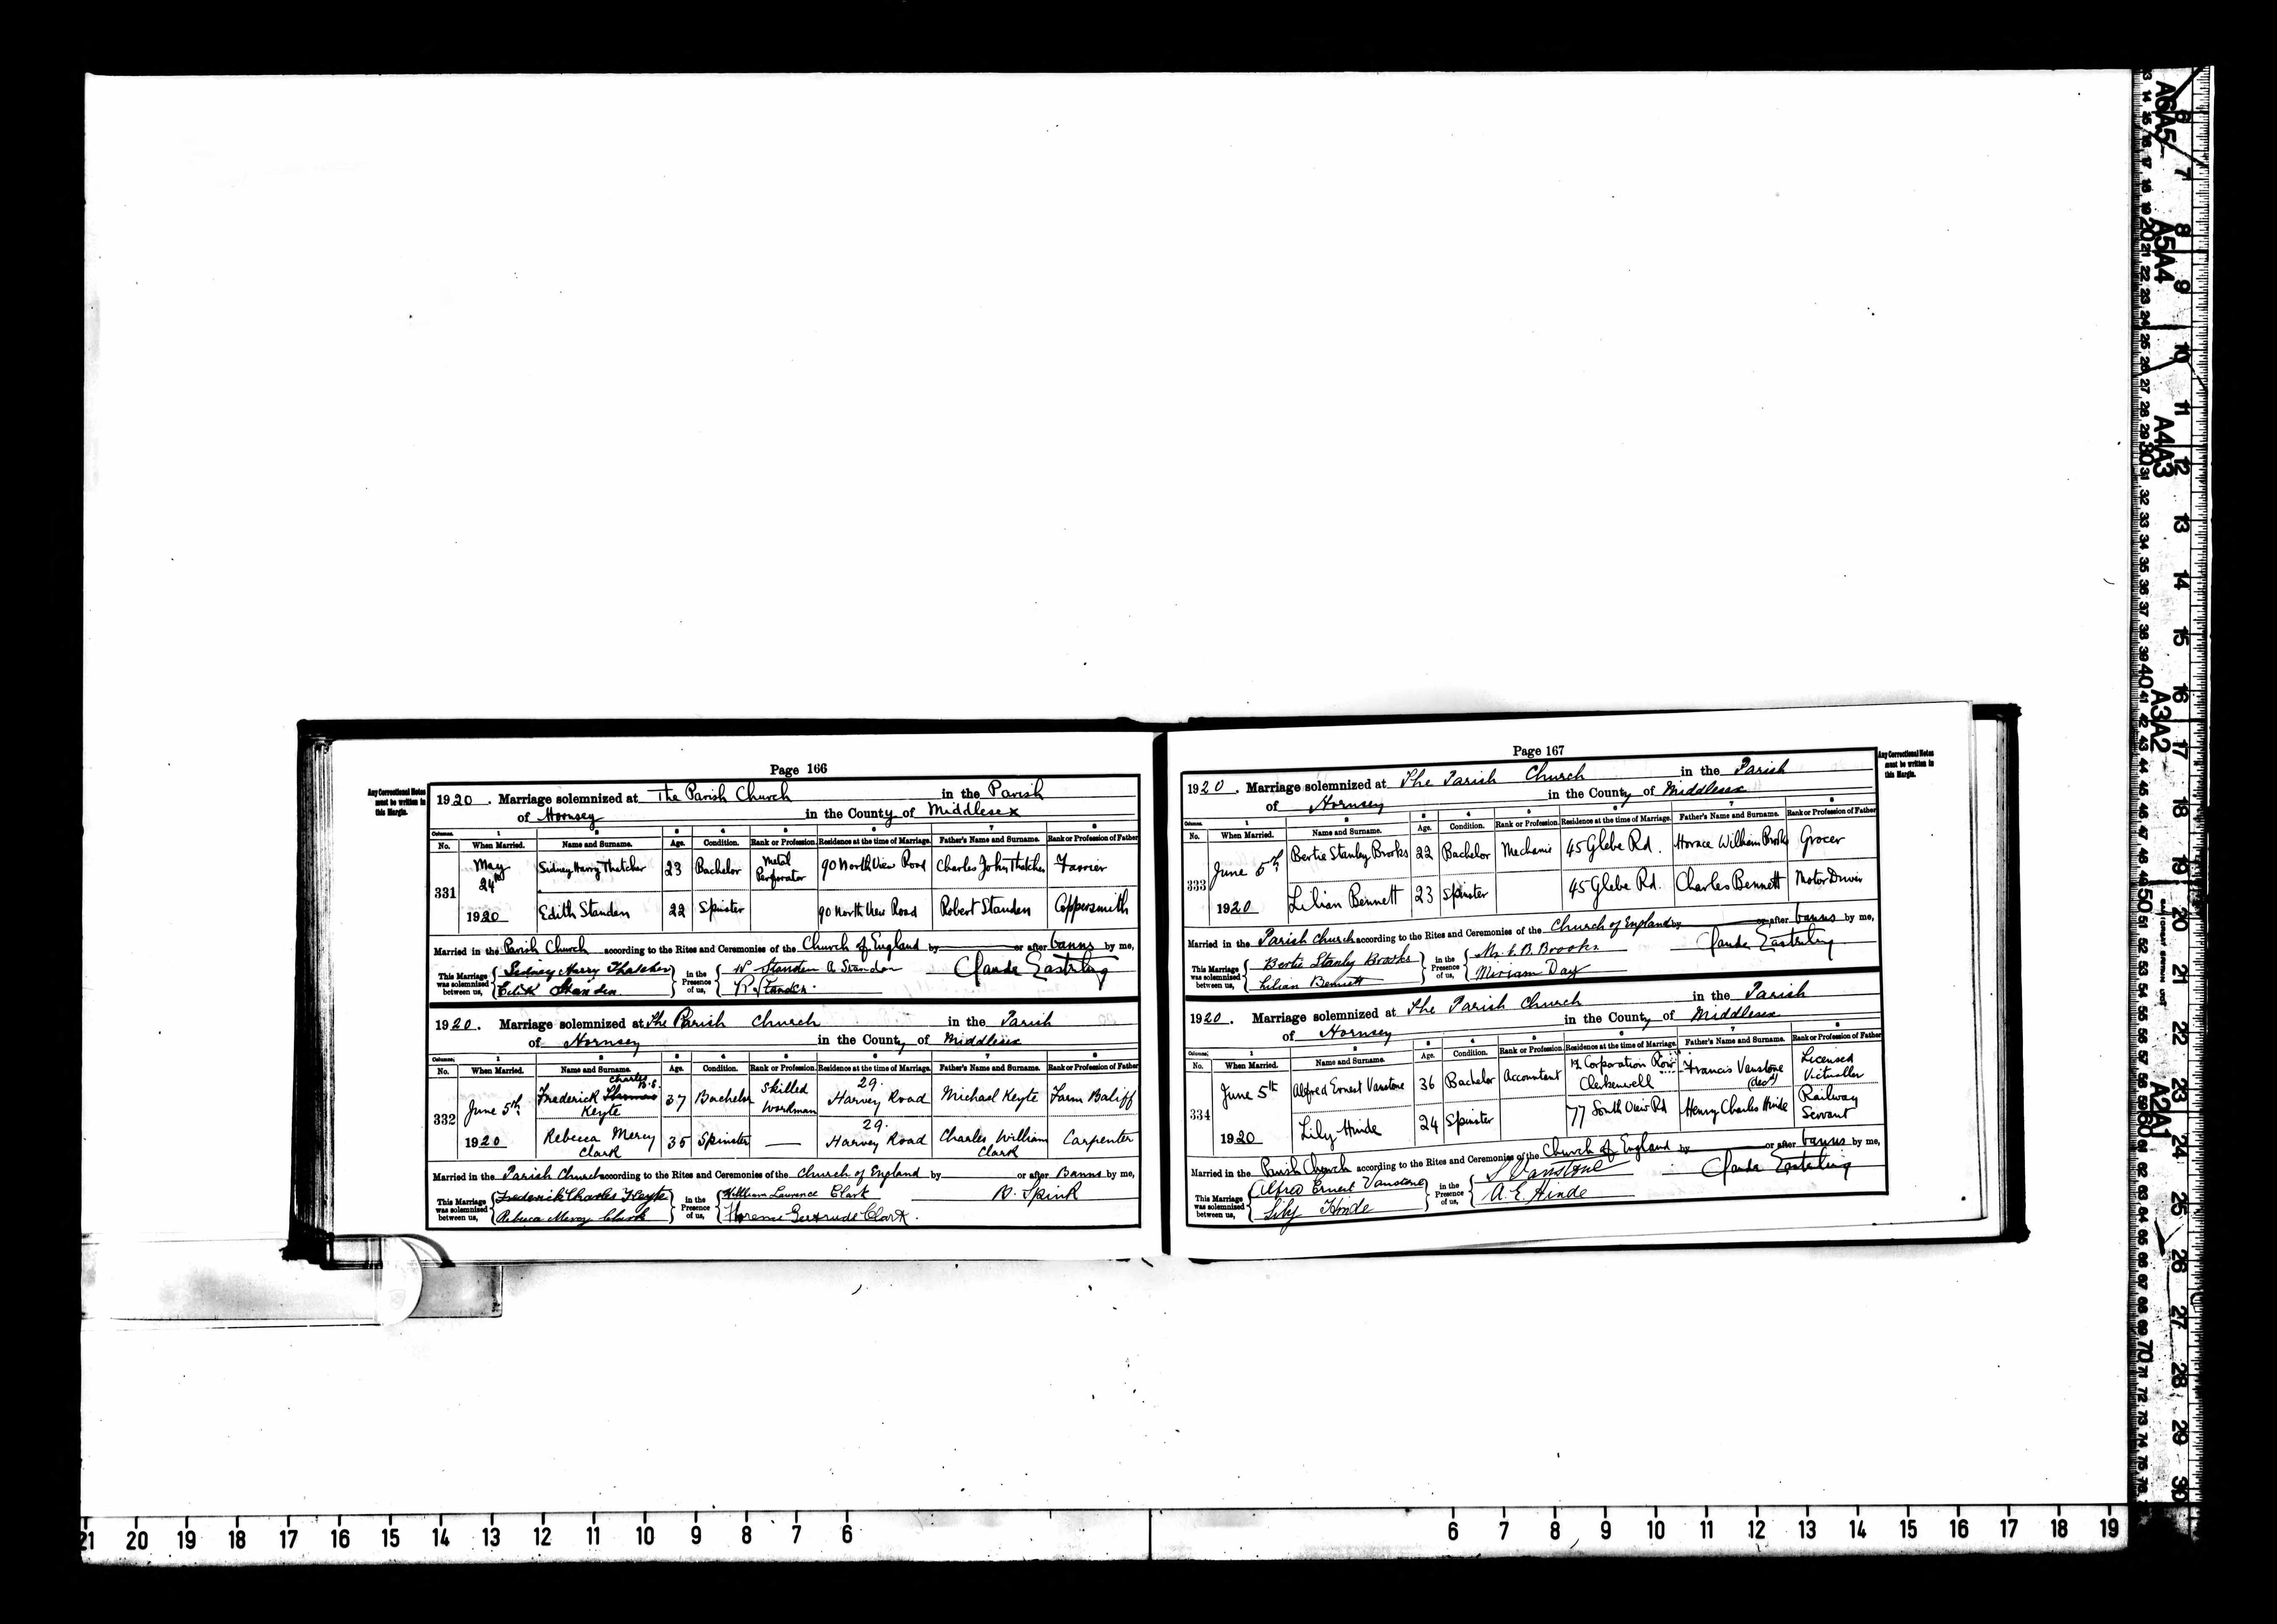 Page 166
Any Correctional Notes
must be written in
this Margin.
1920. Marriage solemnized at The Parish Church in the Parish
of Hornsey in the County of Middlesex
Columns. 1 2 3 4 5 6 7 8
No. When Married. Name and Surname. Age. Condition. Rank or Profession. Residence at the time of Marriage. Father's Name and Surname. Rank or Profession of Father
331 May 24th 1920 Sidney Harry Thatcher 23 Bachelor Metal Perforator 90 North View Road Charles John Thatcher Farrier
Edith Standen 22 Spinster 90 North View Road Robert Standen Coppersmith
Married in the Parish Church according to the Rites and Ceremonies of the Church of England by or after banns by me,
This Marriage was solemnized between us, Sidney Harry Thatcher Edith Standen in the Presence of us, W Standen A Standen R Standen Claude Easterling
1920. Marriage solemnized at The Parish Church in the Parish
of Hornsey in the County of Middlesex
Columns. 1 2 3 4 5 6 7 8
No. When Married. Name and Surname. Age. Condition. Rank or Profession. Residence at the time of Marriage. Father's Name and Surname. Rank or Profession of Father
332 June 5th 1920 Frederick Charles Keyte 37 Bachelor Skilled Workman 29. Harvey Road Michael Keyte Farm Baliff
Rebecca Mercy Clark 35 Spinster 29. Harvey Road Charles William Clark Carpenter
Married in the Parish Church according to the Rites and Ceremonies of the Church of England by or after Banns by me,
This Marriage was solemnized between us, Frederick Charles Keyte Rebecca Mercy Clark in the Presence of us, William Laurence Clark Florence Gertrude Clark. Spink
Page 167
Any Correctional Notes
must be written in
this Margin.
1920. Marriage solemnized at The Parish Church in the Parish
of Hornsey in the County of Middlesex
Columns. 1 2 3 4 5 6 7 8
No. When Married. Name and Surname. Age. Condition. Rank or Profession. Residence at the time of Marriage. Father's Name and Surname. Rank or Profession of Father
333 June 5th 1920 Bertie Stanley Brooks 22 Bachelor Mechanic 45 Glebe Rd. Horace William Brooks Grocer
Lilian Bennett 23 Spinster 45 Glebe Rd. Charles Bennett Motor Driver
Married in the Parish Church according to the Rites and Ceremonies of the Church of England by or after banns by me,
This Marriage was solemnized between us, Bertie Stanley Brooks Lilian Bennett in the Presence of us, B. Brooks. Miriam Day Claude Easterling
1920. Marriage solemnized at The Parish Church in the Parish
of Hornsey in the County of Middlesex
Columns. 1 2 3 4 5 6 7 8
No. When Married. Name and Surname. Age. Condition. Rank or Profession. Residence at the time of Marriage. Father's Name and Surname. Rank or Profession of Father
334 June 5th 1920 Alfred Ernest Vanstone 36 Bachelor Accountant Corporation Row Clerkenwell Francis Vanstone (decd) Licensed Victualler
Lily Hinde 24 Spinster 77 South View Rd Henry Charles Hinde Railway Servant
Married in the Parish Church according to the Rites and Ceremonies of the Church of England by or after banns by me,
This Marriage was solemnized between us, Alfred Ernest Vanstone Lily Hinde in the Presence of us, Vanstone A. E. Hinde Claude Easterling
21 20 19 18 17 16 15 14 13 12 11 10 9 8 7 6 6 7 8 9 10 11 12 13 14 15 16 17 18 19